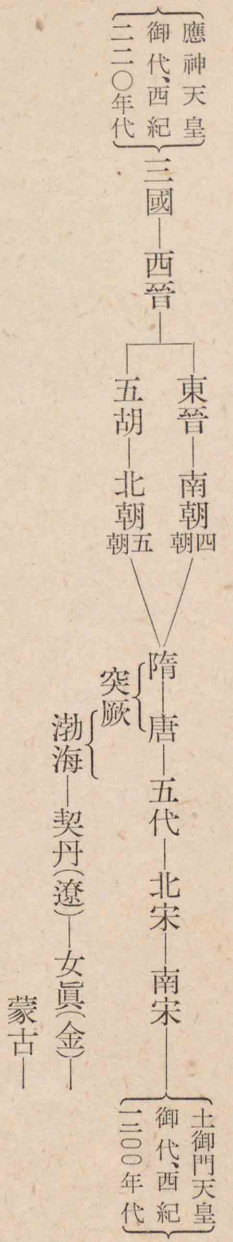 應神天皇
御代、西紀
二二〇年代
三國―西晉
東晉―南朝四朝
五胡―北朝五朝
隋―唐―五代―北宋―南宋
突厥
渤海―契丹(遼)―女眞(金)
蒙古
土御門天皇
御代、西紀
一二〇〇年代